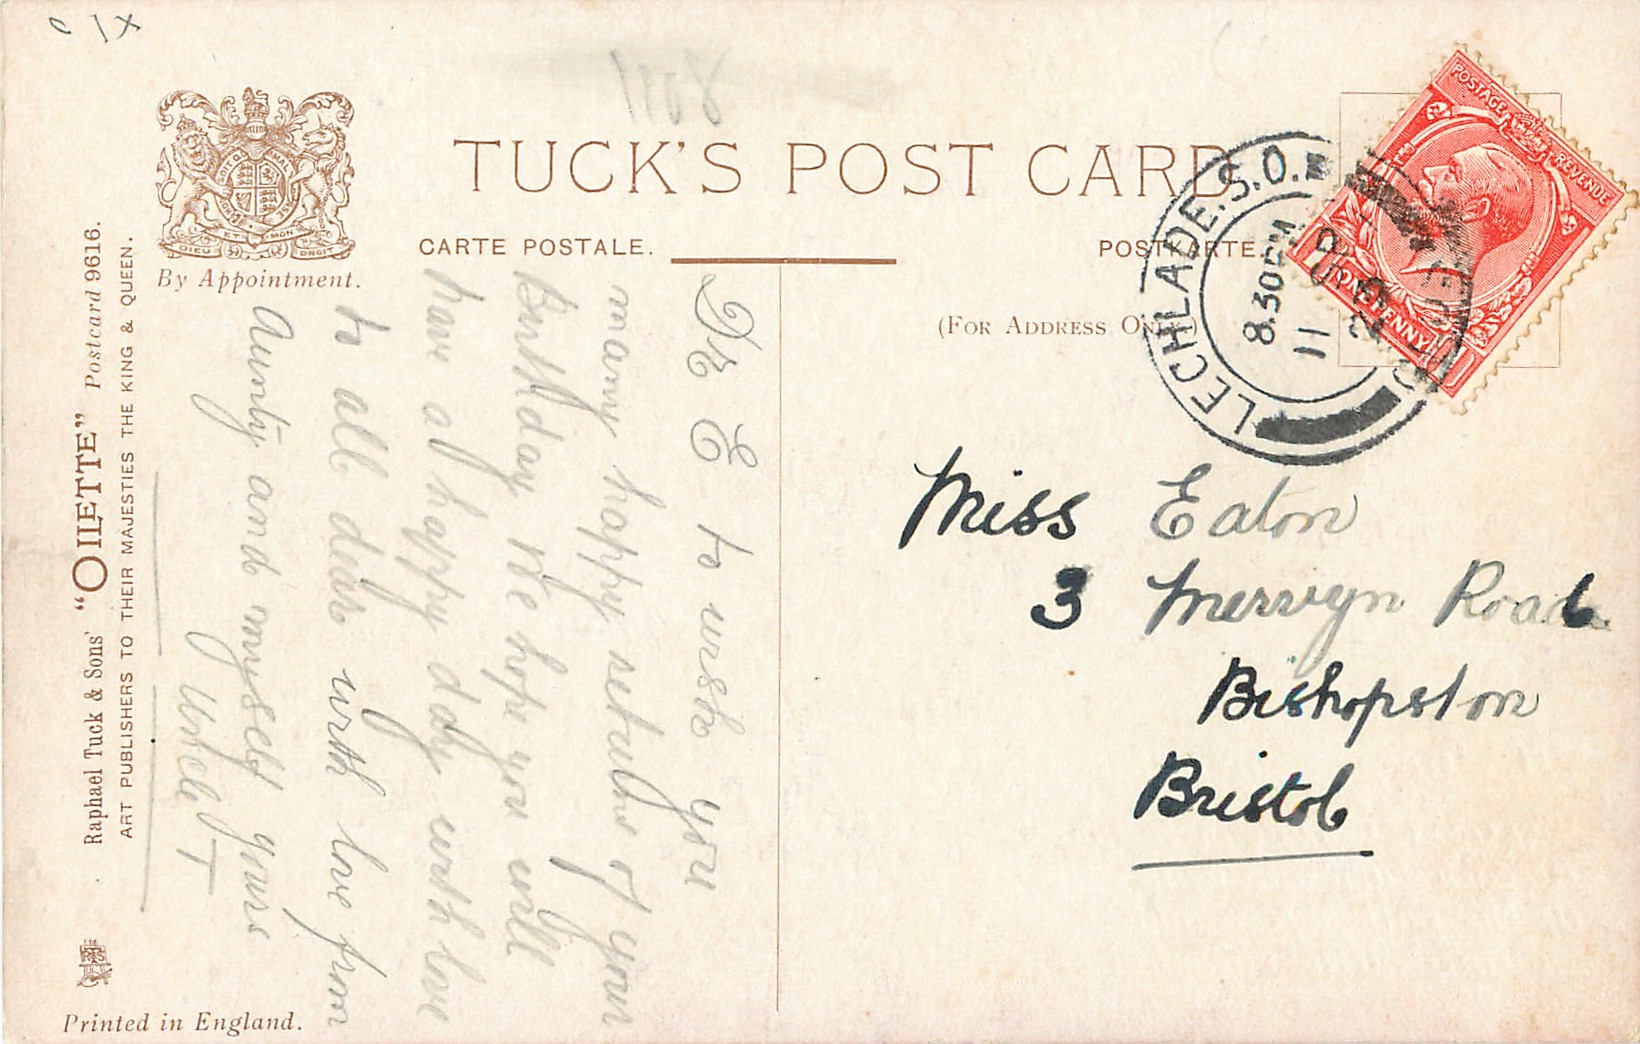 TUCK'S POST CARD
CARTE POSTALE.
POSTKARTE.
(FOR ADDRESS ONLY.)
By Appointment.
DIEU ET MON DROIT
Raphael Tuck & Sons' "OILETTE" Postcard 9616.
ART PUBLISHERS TO THEIR MAJESTIES THE KING & QUEEN.
Printed in England.
POSTAGE REVENUE
ONE PENNY
LECHLADE.S.O.
8.30PM
11
Dr E to wish you
many happy returns of your
Birthday We hope you will
have a happy day with love
to all dear with love from
Aunty and myself yours
Uncle T
Miss Eaton
3 Mervyn Road
Bishopston
Bristol